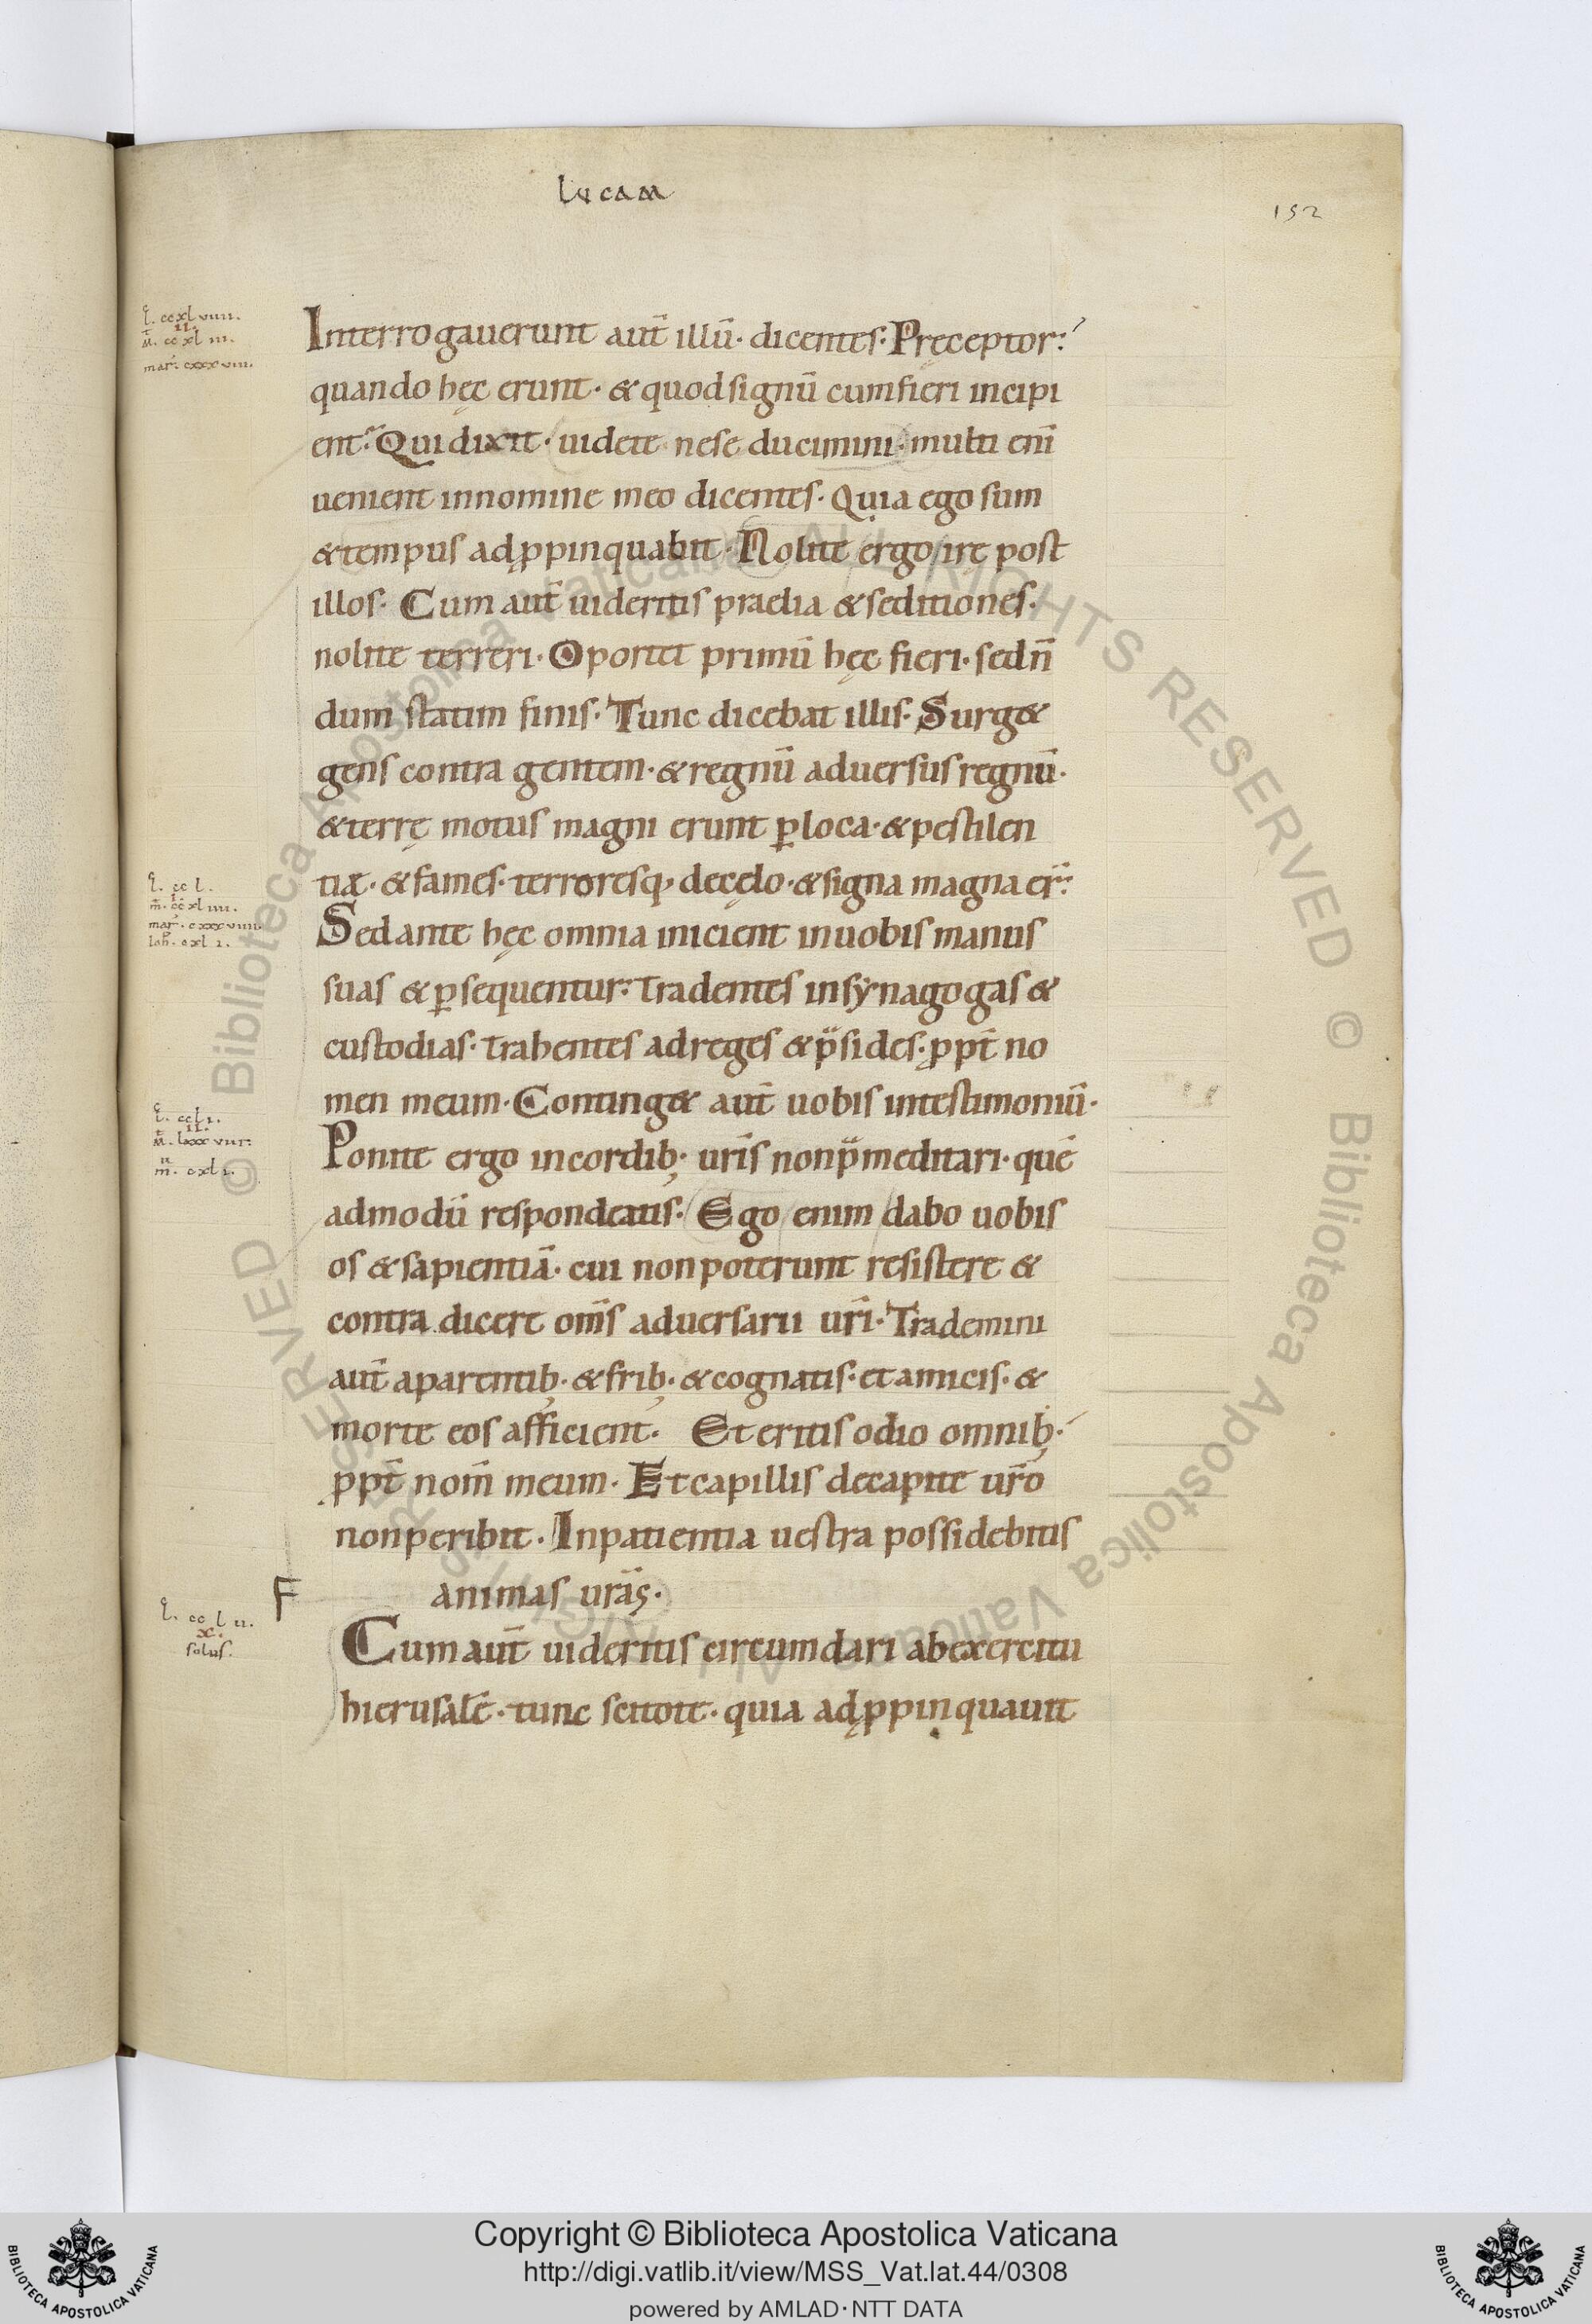 Lucam
152
l. ccxlviiii.
ii.
m. ccxliii.
mar. cxxxviii.
Interrogauerunt aut̄ illū· dicentes· Pręceptor:
quando hęc erunt· & quod signū cum fieri incipi
ent· Qui dixit· uidete ne seducimini· multi enī
uenient in nomine meo dicentes· Quia ego sum
& tempus adp̱pinquabit· Nolite ergo ire post
illos· Cum aut̄ uideritis praelia & seditiones·
nolite terreri· Oportet primū hęc fieri· sed n̄
dum statim finis· Tunc dicebat illis· Surg&
gens contra gentem· & regnū aduersus regnū·
& terrę motus magni erunt ꝑ loca· & pestilen
tiæ· & fames· terroresq; de cęlo· & signa magna er̄:
l. ccl.
i.
m. ccxliiii.
mar. cxxxviiii.
ioh. cxli.
Sed ante hęc omnia inicient in uobis manus
suas & ꝑsequentur: tradentes in synagogas &
custodias· trahentes ad reges & p̄sides· ꝓpt̄ no
men meum· Conting& aut̄ uobis in testimoniū·
l. ccli.
ii.
m. lxxxviii.
m. cxli.
Ponite ergo in cordib; ur̄is non p̄meditari· quē
admodū respondeatis· Ego enim dabo uobis
os & sapientiā· cui non poterunt resistere &
contra dicere om̄s aduersarii ur̄i· Trademini
aut̄ a parentib; & fr̄ib; & cognatis· et amicis· &
morte eos afficient· Et eritis odio omnib;
ꝓpt̄ nom̄ meum· Et capillis de capite ur̄o
non peribit· In patientia uestra possidebitis
F
animas ur̄as·
l. cclii.
x.
solus.
Cum aut̄ uideritis circumdari ab exercitu
hierusalē· tunc scitote· quia adꝓpinquauit
© Biblioteca Apostolica Vaticana ALL RIGHTS RESERVED © Biblioteca Apostolica Vaticana ALL RIGHTS RESERVED
Copyright © Biblioteca Apostolica Vaticana
http://digi.vatlib.it/view/MSS_Vat.lat.44/0308
powered by AMLAD·NTT DATA
BIBLIOTECA APOSTOLICA VATICANA
BIBLIOTECA APOSTOLICA VATICANA